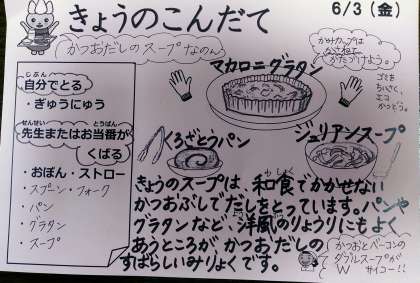 きょうのこんだて
6/3(金)
かつおだしのスープなのん
かみカップは
かさねて
かたづけよう。
ゴミを
ちいさく、
エコ
かつどう。
マカロニグラタン
じぶん
自分でとる
・ぎゅうにゅう
せんせい とうばん
先生またはお当番が
くばる
・おぼん・ストロー
・スプーン・フォーク
・パン
・グラタン
・スープ
くろざとうパン
ジュリアンスープ
わしょく
きょうのスープは、和食でかかせない
かつおぶしでだしをとっています。パンや
ようふう
グラタンなど、洋風のりょうりにもよく
あうところが かつおだしの
すばらしいみりょくです。
かつおとベーコンの
ダブルスープが
W サイコー!!